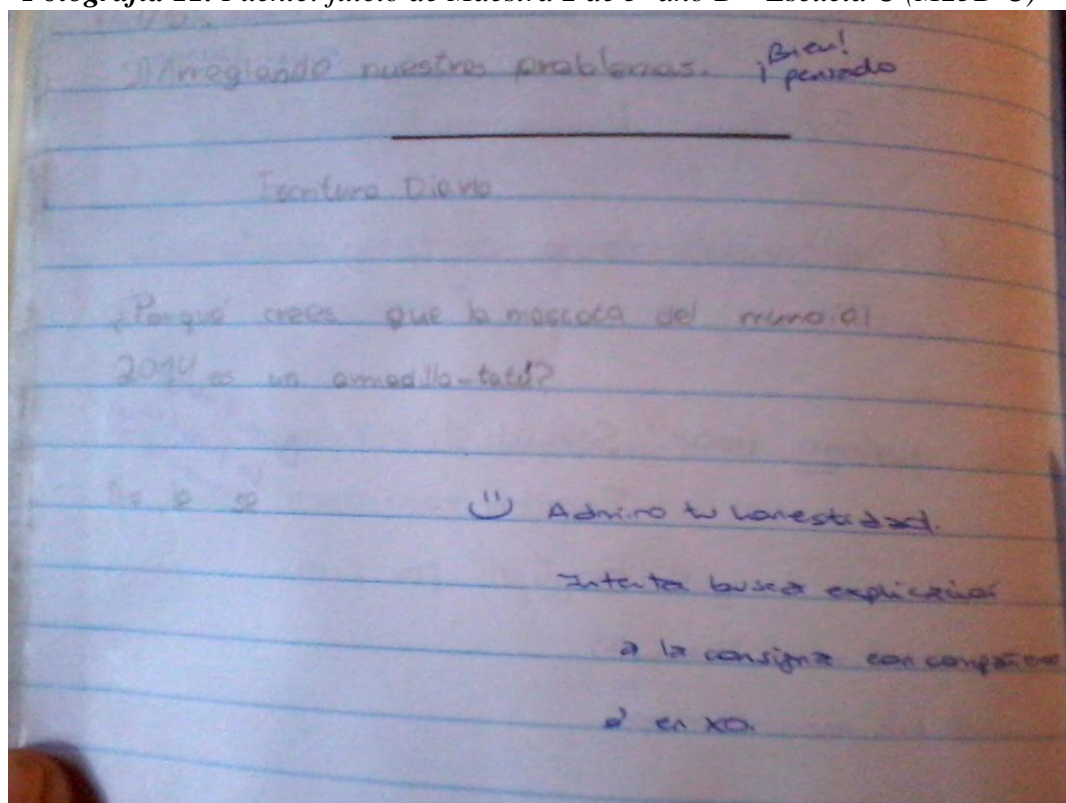 Fotografía 11. Fuente: juicio de Maestra 2 de 5º año B – Escuela C (M25B-C)
Arreglando nuestros problemas. ¡Bien!
pensado
Escritura Diaria
¿Porqué crees que la mascota del mundial
2014 es un armadillo-tatú?
No lo se
Admiro tu honestidad.
Intenta buscar explicación
a la consigna con compañeros
ó en XO.